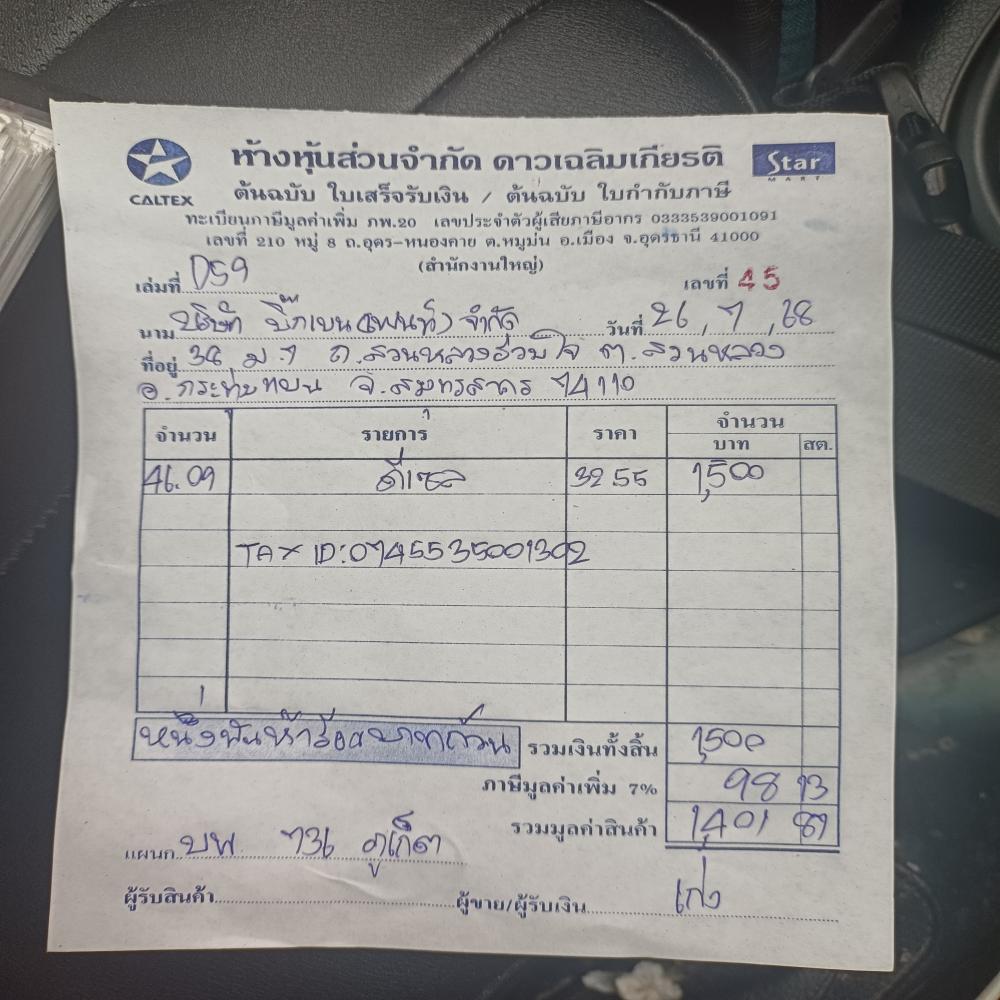 ห้างหุ้นส่วนจำกัด ดาวเฉลิมเกียรติ
Star
MART
CALTEX
ต้นฉบับ ใบเสร็จรับเงิน / ต้นฉบับ ใบกำกับภาษี
ทะเบียนภาษีมูลค่าเพิ่ม ภพ.20 เลขประจำตัวผู้เสียภาษีอากร 0333539001091
เลขที่ 210 หมู่ 8 ถ.อุดร-หนองคาย ต.หมูม่น อ.เมือง จ.อุดรธานี 41000
(สำนักงานใหญ่)
เล่มที่ 059 เลขที่ 45
นาม บริษัท บิ๊กเบน(เพนท์) จำกัด วันที่ 26 / 7 / 68
ที่อยู่ 34 ม.7 ถ.สวนหลวงร่วมใจ ต.สวนหลวง
อ.กระทุ่มแบน จ.สมุทรสาคร 74110
จำนวน รายการ ราคา จำนวน
บาท สต.
46.09 ดีเซล 32 55 1,500
TAX ID:0745535001302
หนึ่งพันห้าร้อยบาทถ้วน รวมเงินทั้งสิ้น 1,500
ภาษีมูลค่าเพิ่ม 7% 98 13
รวมมูลค่าสินค้า 1,401 87
แผนก บพ 736 ภูเก็ต
ผู้รับสินค้า ผู้ขาย/ผู้รับเงิน เก่ง